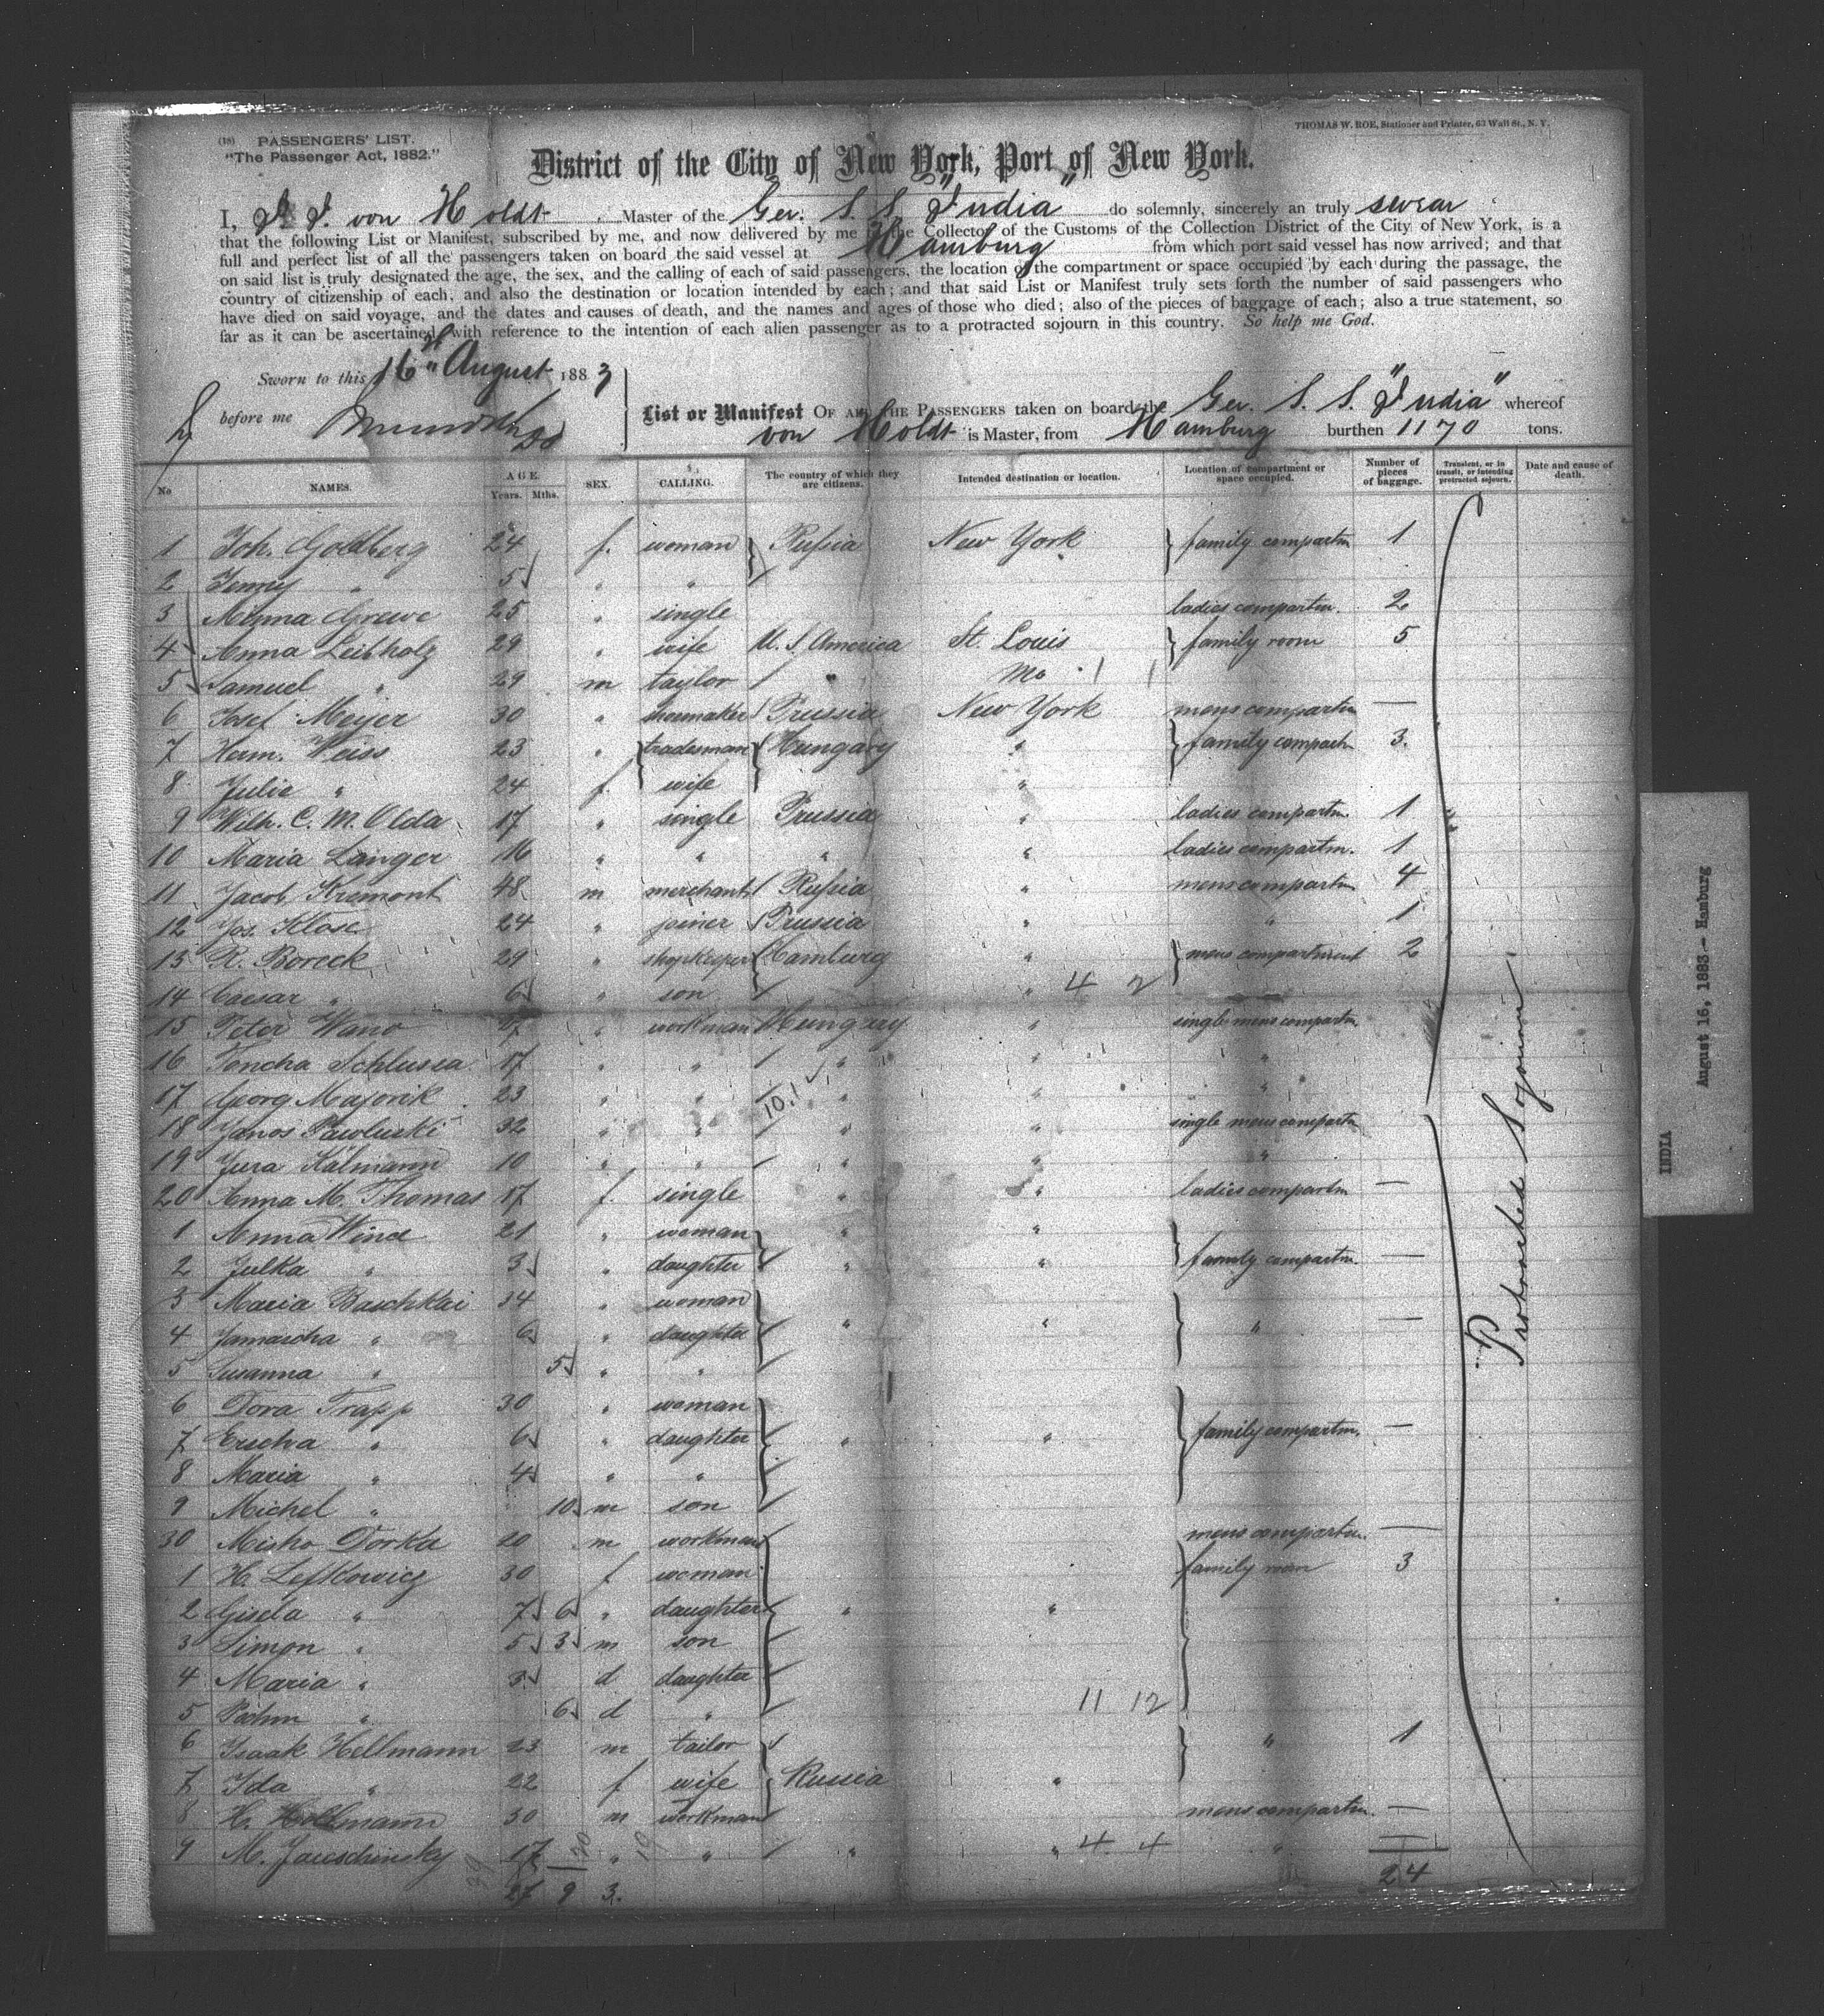 (18) PASSENGERS' LIST.
"The Passenger Act, 1882."
THOMAS W. ROE, Stationer and Printer, 63 Wall St., N. Y.
District of the City of New York, Port of New York.
I, J. J. von Holdt Master of the Ger. S. S. "India" do solemnly, sincerely an truly swear
that the following List or Manifest, subscribed by me, and now delivered by me to the Collector of the Customs of the Collection District of the City of New York, is a
full and perfect list of all the passengers taken on board the said vessel at Hamburg from which port said vessel has now arrived; and that
on said list is truly designated the age, the sex, and the calling of each of said passengers, the location of the compartment or space occupied by each during the passage, the
country of citizenship of each, and also the destination or location intended by each; and that said List or Manifest truly sets forth the number of said passengers who
have died on said voyage, and the dates and causes of death, and the names and ages of those who died; also of the pieces of baggage of each; also a true statement, so
far as it can be ascertained with reference to the intention of each alien passenger as to a protracted sojourn in this country. So help me God.
Sworn to this 16th August 1883
before me
List or Manifest OF ALL THE PASSENGERS taken on board the Ger. S. S. "India" whereof
von Holdt is Master, from Hamburg burthen 1170 tons.
No NAMES. AGE. Years. Mths. SEX. CALLING. The country of which they are citizens. Intended destination or location. Location of compartment or space occupied. Number of pieces of baggage. Transient, or in transit, or intending protracted sojourn. Date and cause of death.
1 Joh. Goldberg 24 f. woman Russia New York family compartm 1
2 Jenny " 5 " "
3 Minna Grewe 25 " single ladies compartm. 2
4 Anna Leibholz 29 " wife U. S. America St. Louis family room 5
5 Samuel " 29 m taylor " Mo
6 Josef Meijer 30 " shoemaker Prussia New York mens compartm —
7 Herm. Weiss 23 " tradesman Hungary " family compartm 3.
8 Julie " 24 f. wife "
9 Wilh. C. M. Olda 17 " single Prussia " ladies compartm. 1
10 Maria Langer 16 " " " " ladies compartm. 1
11 Jacob Kremont 48 m merchant Russia " mens compartm 4
12 Jos. Klose 24 " joiner Prussia " " 1
13 R. Boreck 29 " shopkeeper Hamburg " mens compartment 2
14 Caesar " 6 " son " 4 2
15 Peter Wano 27 " workman Hungary " single mens compartm
16 Joncha Schlussa 17 " " " " "
17 Georg Majorik 23 " " 10.1 " " "
18 Janos Pawluski 32 " " " " single mens compartm
19 Jura Kalmann 10 " " " " "
20 Anna M. Thomas 17 f. single " " ladies compartm —
1 Anna Wind 21 " woman " "
2 Julka " 3 " daughter " " family compartm. —
3 Maria Baschkai 34 " woman
4 Jamascha " 6 " daughter " " " —
5 Susanna " 5 " "
6 Dora Trapp 30 " woman
7 Erscha " 6 " daughter " " family compartm. —
8 Maria " 4 " "
9 Michel " 10 m son
30 Misho Dorka 20 m workman mens compartm. —
1 H. Lefkowicz 30 f woman family room 3
2 Gisela " 7 6 " daughter " "
3 Simon " 5 3 m son
4 Maria " 3 d daughter
5 " 6 d " 11 12
6 Isaak Hellmann 23 m tailor " 1
7 Ida " 22 f wife Russia "
8 H. Hollmann 30 m workman mens compartm. —
9 M. Jaroschinsky 17 " " " " 4 4 " —
27 9 3. 24
Protracted Sojourn
INDIA
August 16, 1883 - Hamburg